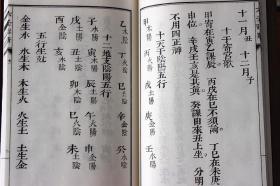 十一月丑 十二月子
十干寄宮歌
甲寄在寅乙課辰 丙戊在巳不須論 丁己在未庚申
上 辛戌壬亥是其真 癸課因來丑上生 分明
不用四正辰
十天干陰陽五行
甲木陽 丙火陽 戊土陽 庚金陽 壬水陽
乙木陰 丁火陰 己土陰 辛金陰 癸水陰
十二地支陰陽五行
子水陽 寅木陽 辰土陽 午火陽 申金陽
戌土陽 丑土陰 卯木陰 巳火陰 未土陰
酉金陰 亥水陰
五行生剋
金生水 水生木 木生火 火生土 土生金